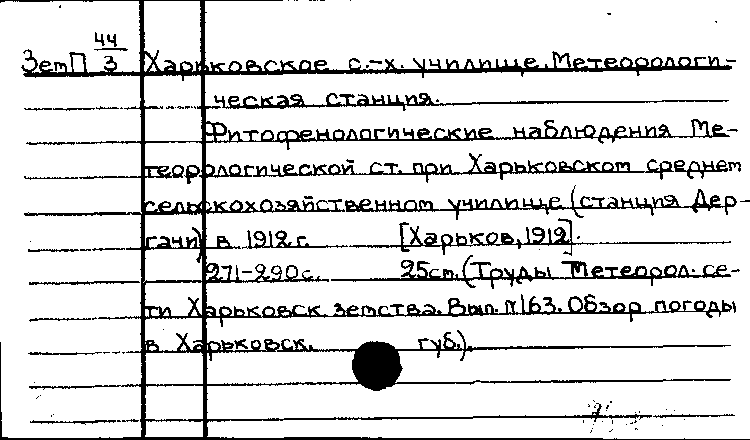 ЗемП 44/3 Харьковское с.-х. училище. Метеорологи-
ческая станция.
Фитофенологические наблюдения Ме-
теорологической ст. при Харьковском среднем
сельскохозяйственном училище (станция Дер-
гачи) в 1912 г. [Харьков, 1912].
271-290 с. 25 см. (Труды Метеорол. се-
ти Харьковск. земства. Вып. №163. Обзор погоды
в Харьковск. губ.).